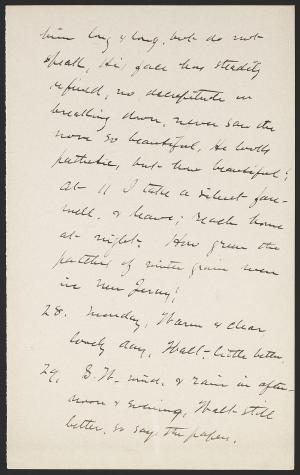 him long & long, but do not
speak, His face has steadily
refined, no decrepitude or
breaking down, never saw the
nose so beautiful, He looks
pathetic, but how beautiful!
At 11 I take a silent fare-
well, & leave; reach home
at night. How green the
patches of winter grain were
in New Jersey!
28. Monday, Warm & clear
lovely day, Walt- little better.
29, S.W. wind, & rain in after-
noon & evening, Walt- still
better, so say the papers.